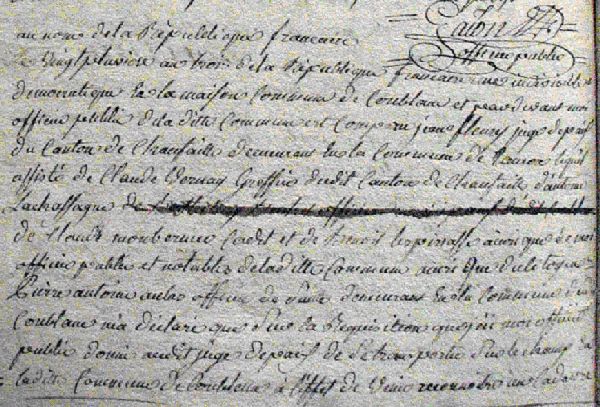 Officier public
au nom de la République francaise
le vingt pluviose an trois de la République francaise une indivisible
democratique en la maison Commune de Coublanc et par devant moi
officier public de la ditte Commune est Comparu jean fleury juge de paix
du Canton de Chaufaille demeurant en la Commune de lequel
assisté de Claude Greffier dudit Canton de Chaufaille d'antoine
Lachassagne de
de Claude Cadet et de Benoit ainsi que de moi
officier public et notables de la ditte Commune ainsi que du Citoyen
Pierre antoine officier de santé demeurant en la Commune de
Coublanc m'a déclaré que sur la Requisition que moi officier
public donné audit juge de paix de se transporter sur le champ en
ladite Commune de Coublanc à l'effet de venir reconnoitre un Cadavre